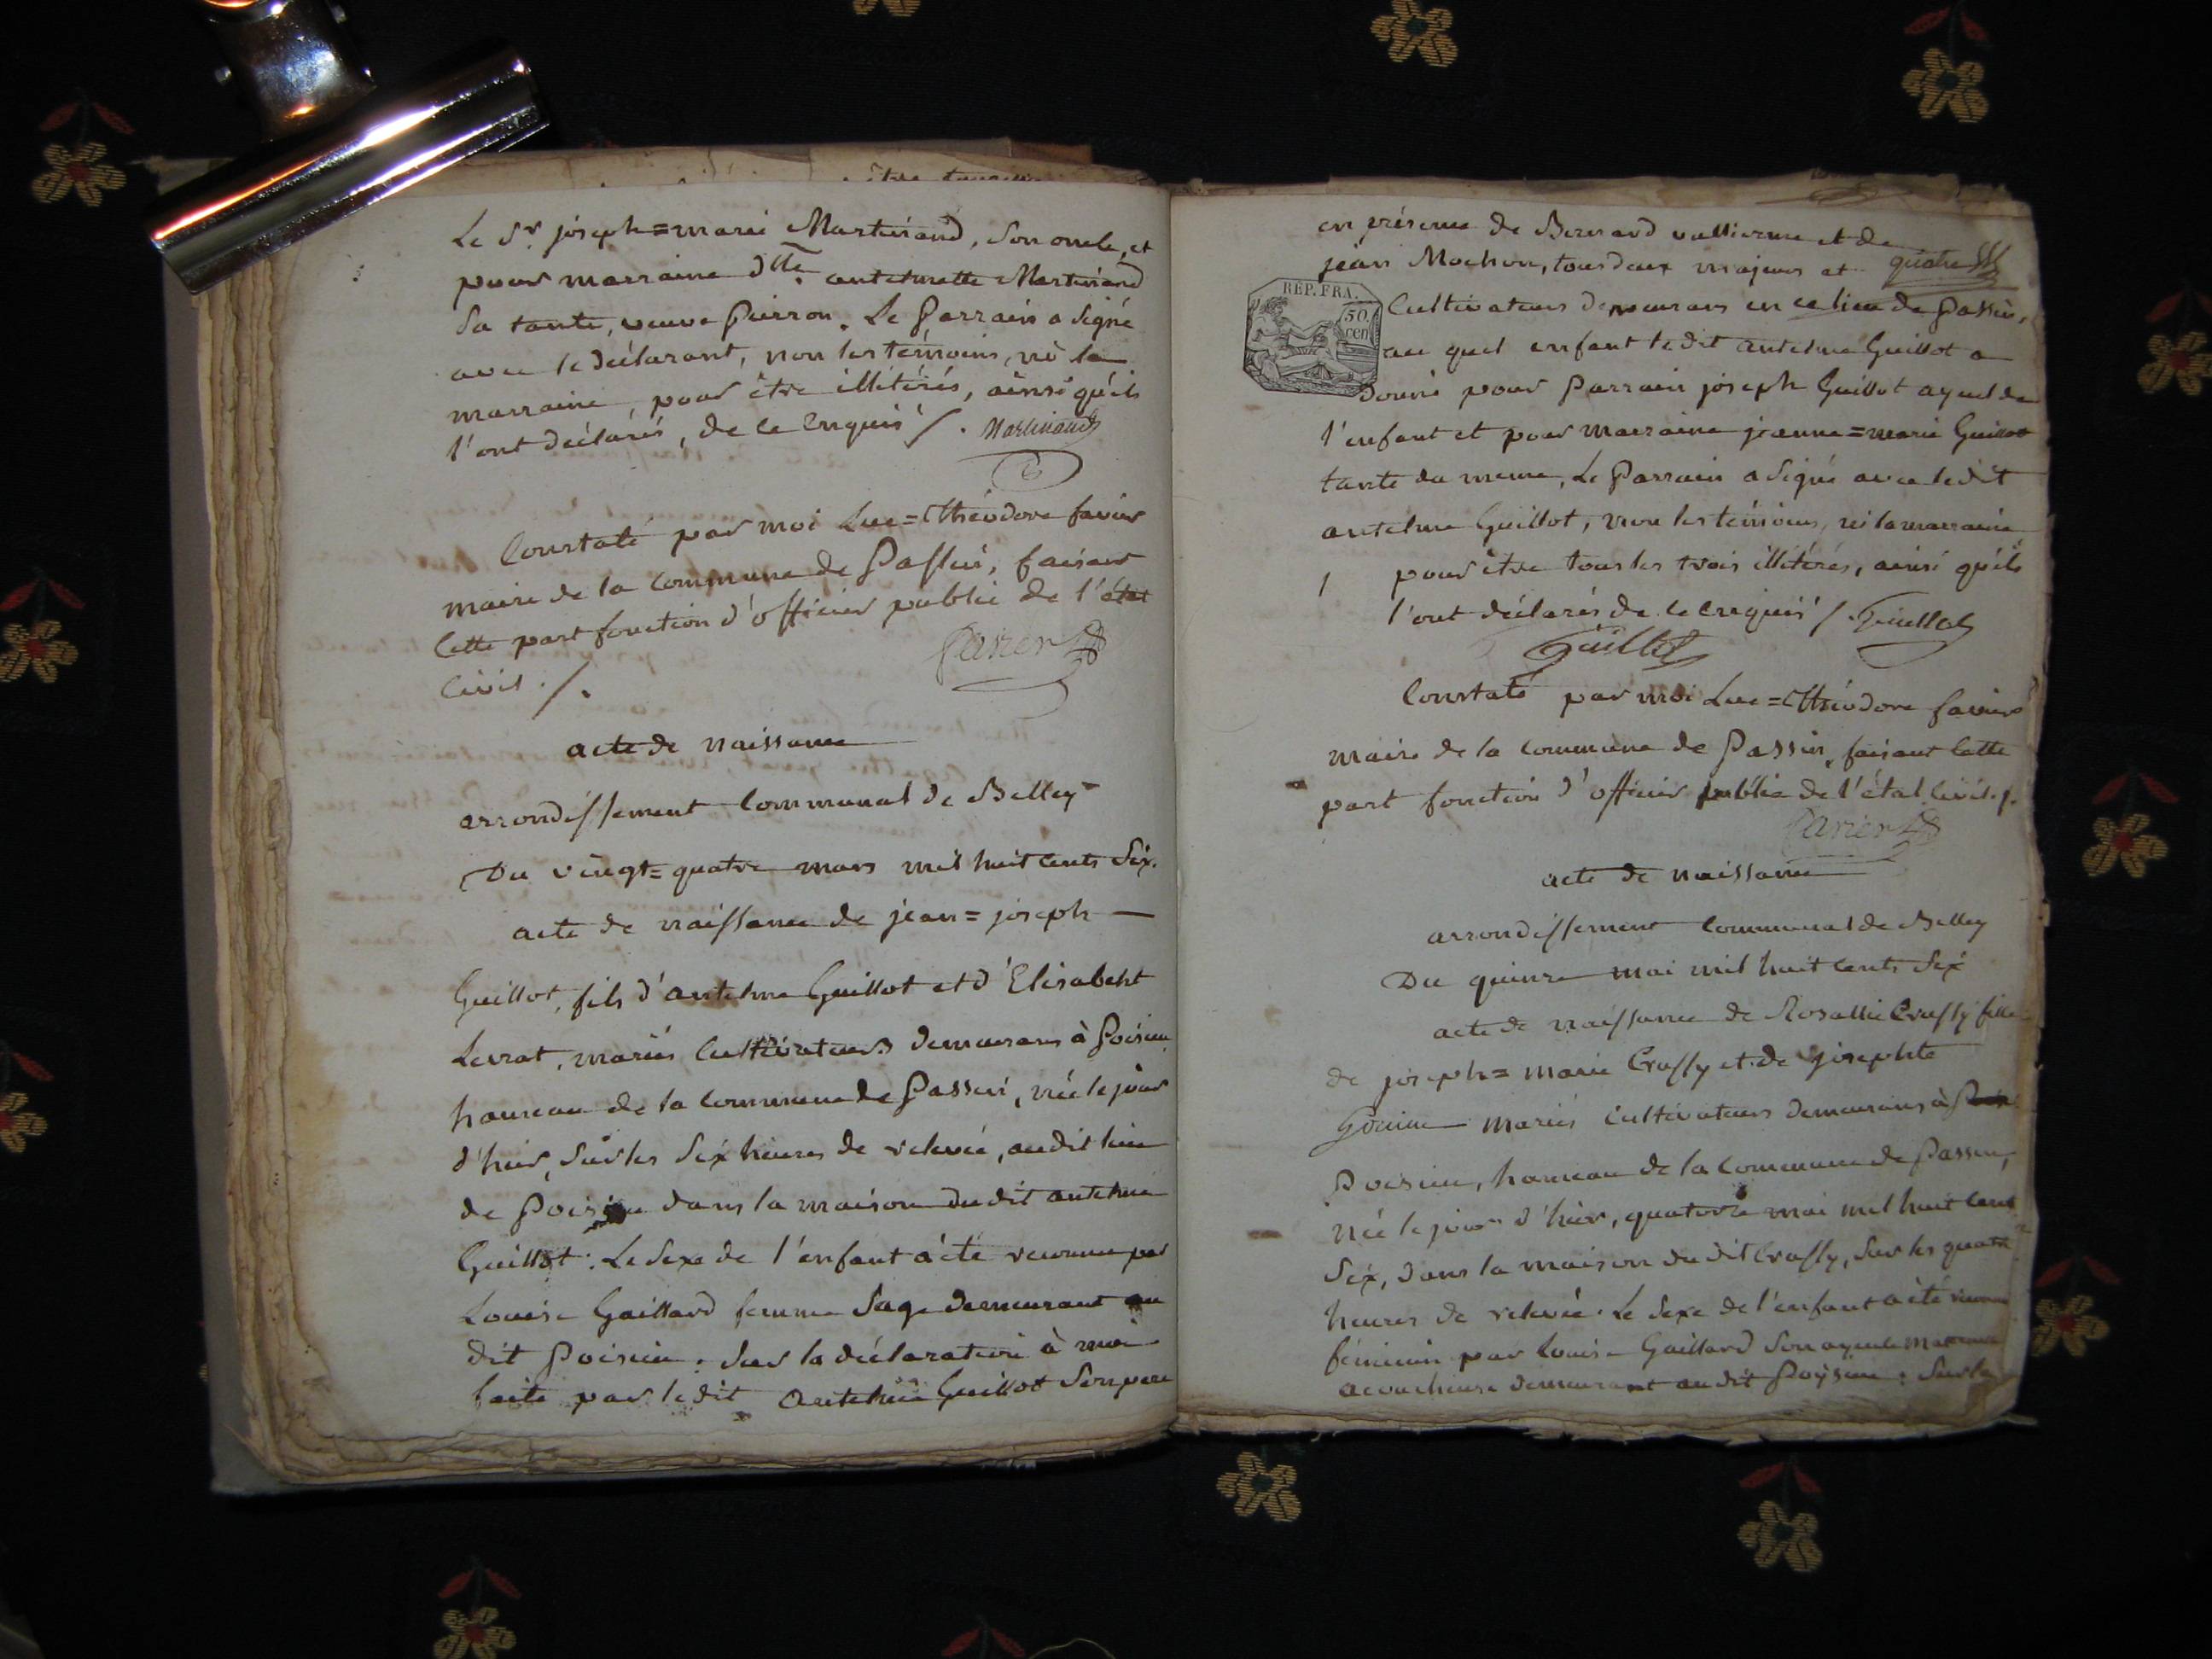 Le Sr. joseph=marie Martinand, son oncle, et
pour marraine dlle. antelmette Martinand
Sa tante, veuve Peirron. Le Parrain a Signé
avec le déclarant, non les témoins, ni la
marraine, pour être illitérés, ainsi qu'ils
l'ont déclarés, de ce Enquis /. Martinand
Constaté par moi Luc=Théodore favier
maire de la Commune de Passin, faisant
Cette part fonction d'officier public de l'état
Civil ./. favier
acte de naissance
arrondissement Communal de Belley
Du vingt=quatre mars mil huit cents Six.
acte de naissance de jean=joseph
Guillot, fils d'antelme Guillot et d'Elisabeht
Levrat, mariés Cultivateurs demeurans à Poisieu
hameau de la Commune de Passin, née le jour
d'hier, Sur les Six heures de relevée, audit lieu
de Poisieu dans la maison dudit antelme
Guillot. Le Sexe de l'enfant à été reconnu par
Louise Gaillard femme Sage demeurant au
dit Poisieu. Sur la déclaration à moi
faite par le dit antelme Guillot Son pere
en présence de Bernard vallierme et de
jean Mochon, tous deux majeurs et quatre
RÉP. FRA.
50.
cen
Cultivateurs demeurans en ce lieu de Passin,
au quel enfant le dit antelme Guillot a
donné pour Parrain joseph Guillot ayeul de
l'enfant et pour marraine jeanne=marie Guillot
tante du meme, Le Parrain a Signé avec le dit
antelme Guillot, non les témoins, ni la marraine
pour être tous les trois illitérés, ainsi qu'ils
l'ont déclarés de ce Enquis /. Guillot
Guillot
Constaté par moi Luc=Théodore favier
maire de la Commune de Passin, faisant Cette
part fonction d'officier public de l'état Civil./.
favier
acte de naissance
arrondissement Communal de Belley
Du quinze mai mil huit cents Six
acte de naissance de Rosallie Crussy fille
de joseph=marie Crussy et de josephte
mariés Cultivateurs demeurans à
Poisieu, hameau de la Commune de Passin,
née le jour d'hier, quatorze mai mil huit cent
Six, dans la maison du dit Crussy, Sur les quatre
heures de relevée. Le Sexe de l'enfant a été reconnu
féminin par Louise Gaillard Son ayeule maternelle
acoucheuse demeurant au dit Poysieu. Sur la